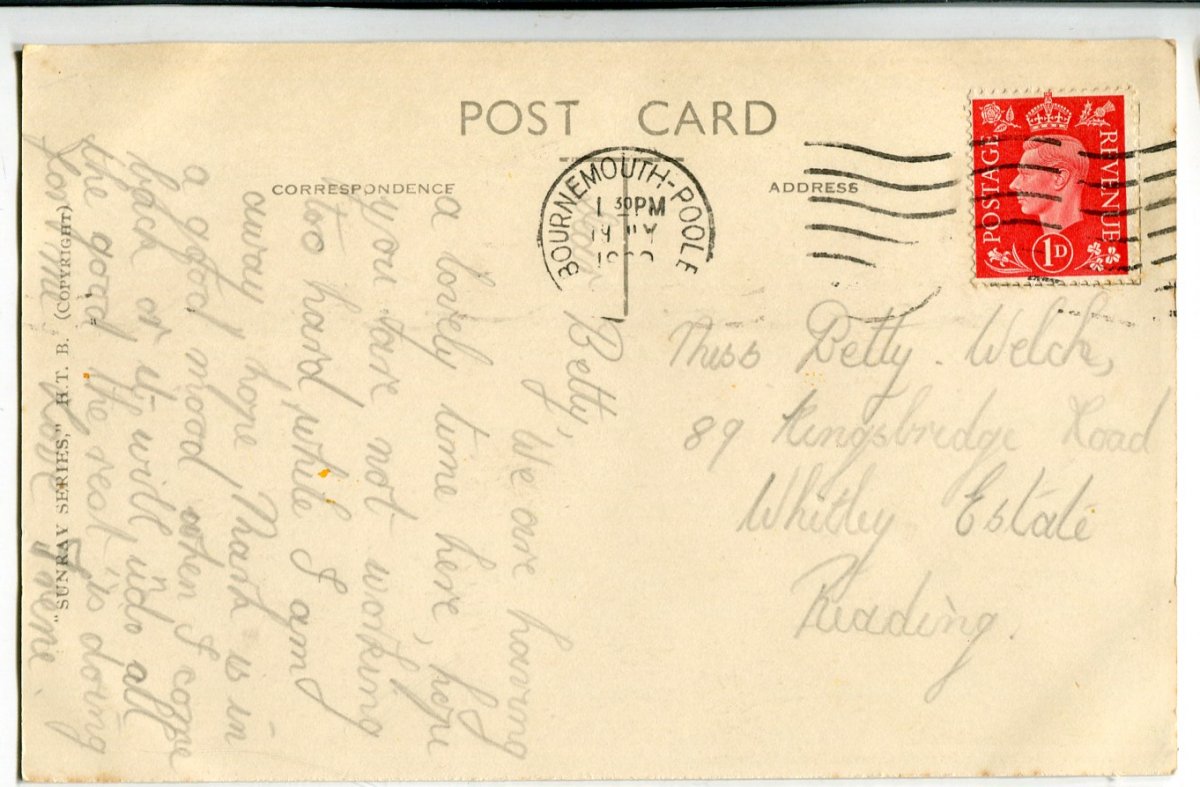 POST CARD
CORRESPONDENCE
ADDRESS
BOURNEMOUTH-POOLE
1 30PM
19
POSTAGE REVENUE
1D
Miss Betty. Welch,
89 Kingsbridge Road
Whitley Estate
Reading.
Betty,
We are having
a lovely time here, hope
you are not working
too hard, while I am
away, hope Mark is in
a good mood when I come
back or it will undo all
the good the rest is doing
for me. Love Irene.
"SUNRAY SERIES," H.T. B. (COPYRIGHT)